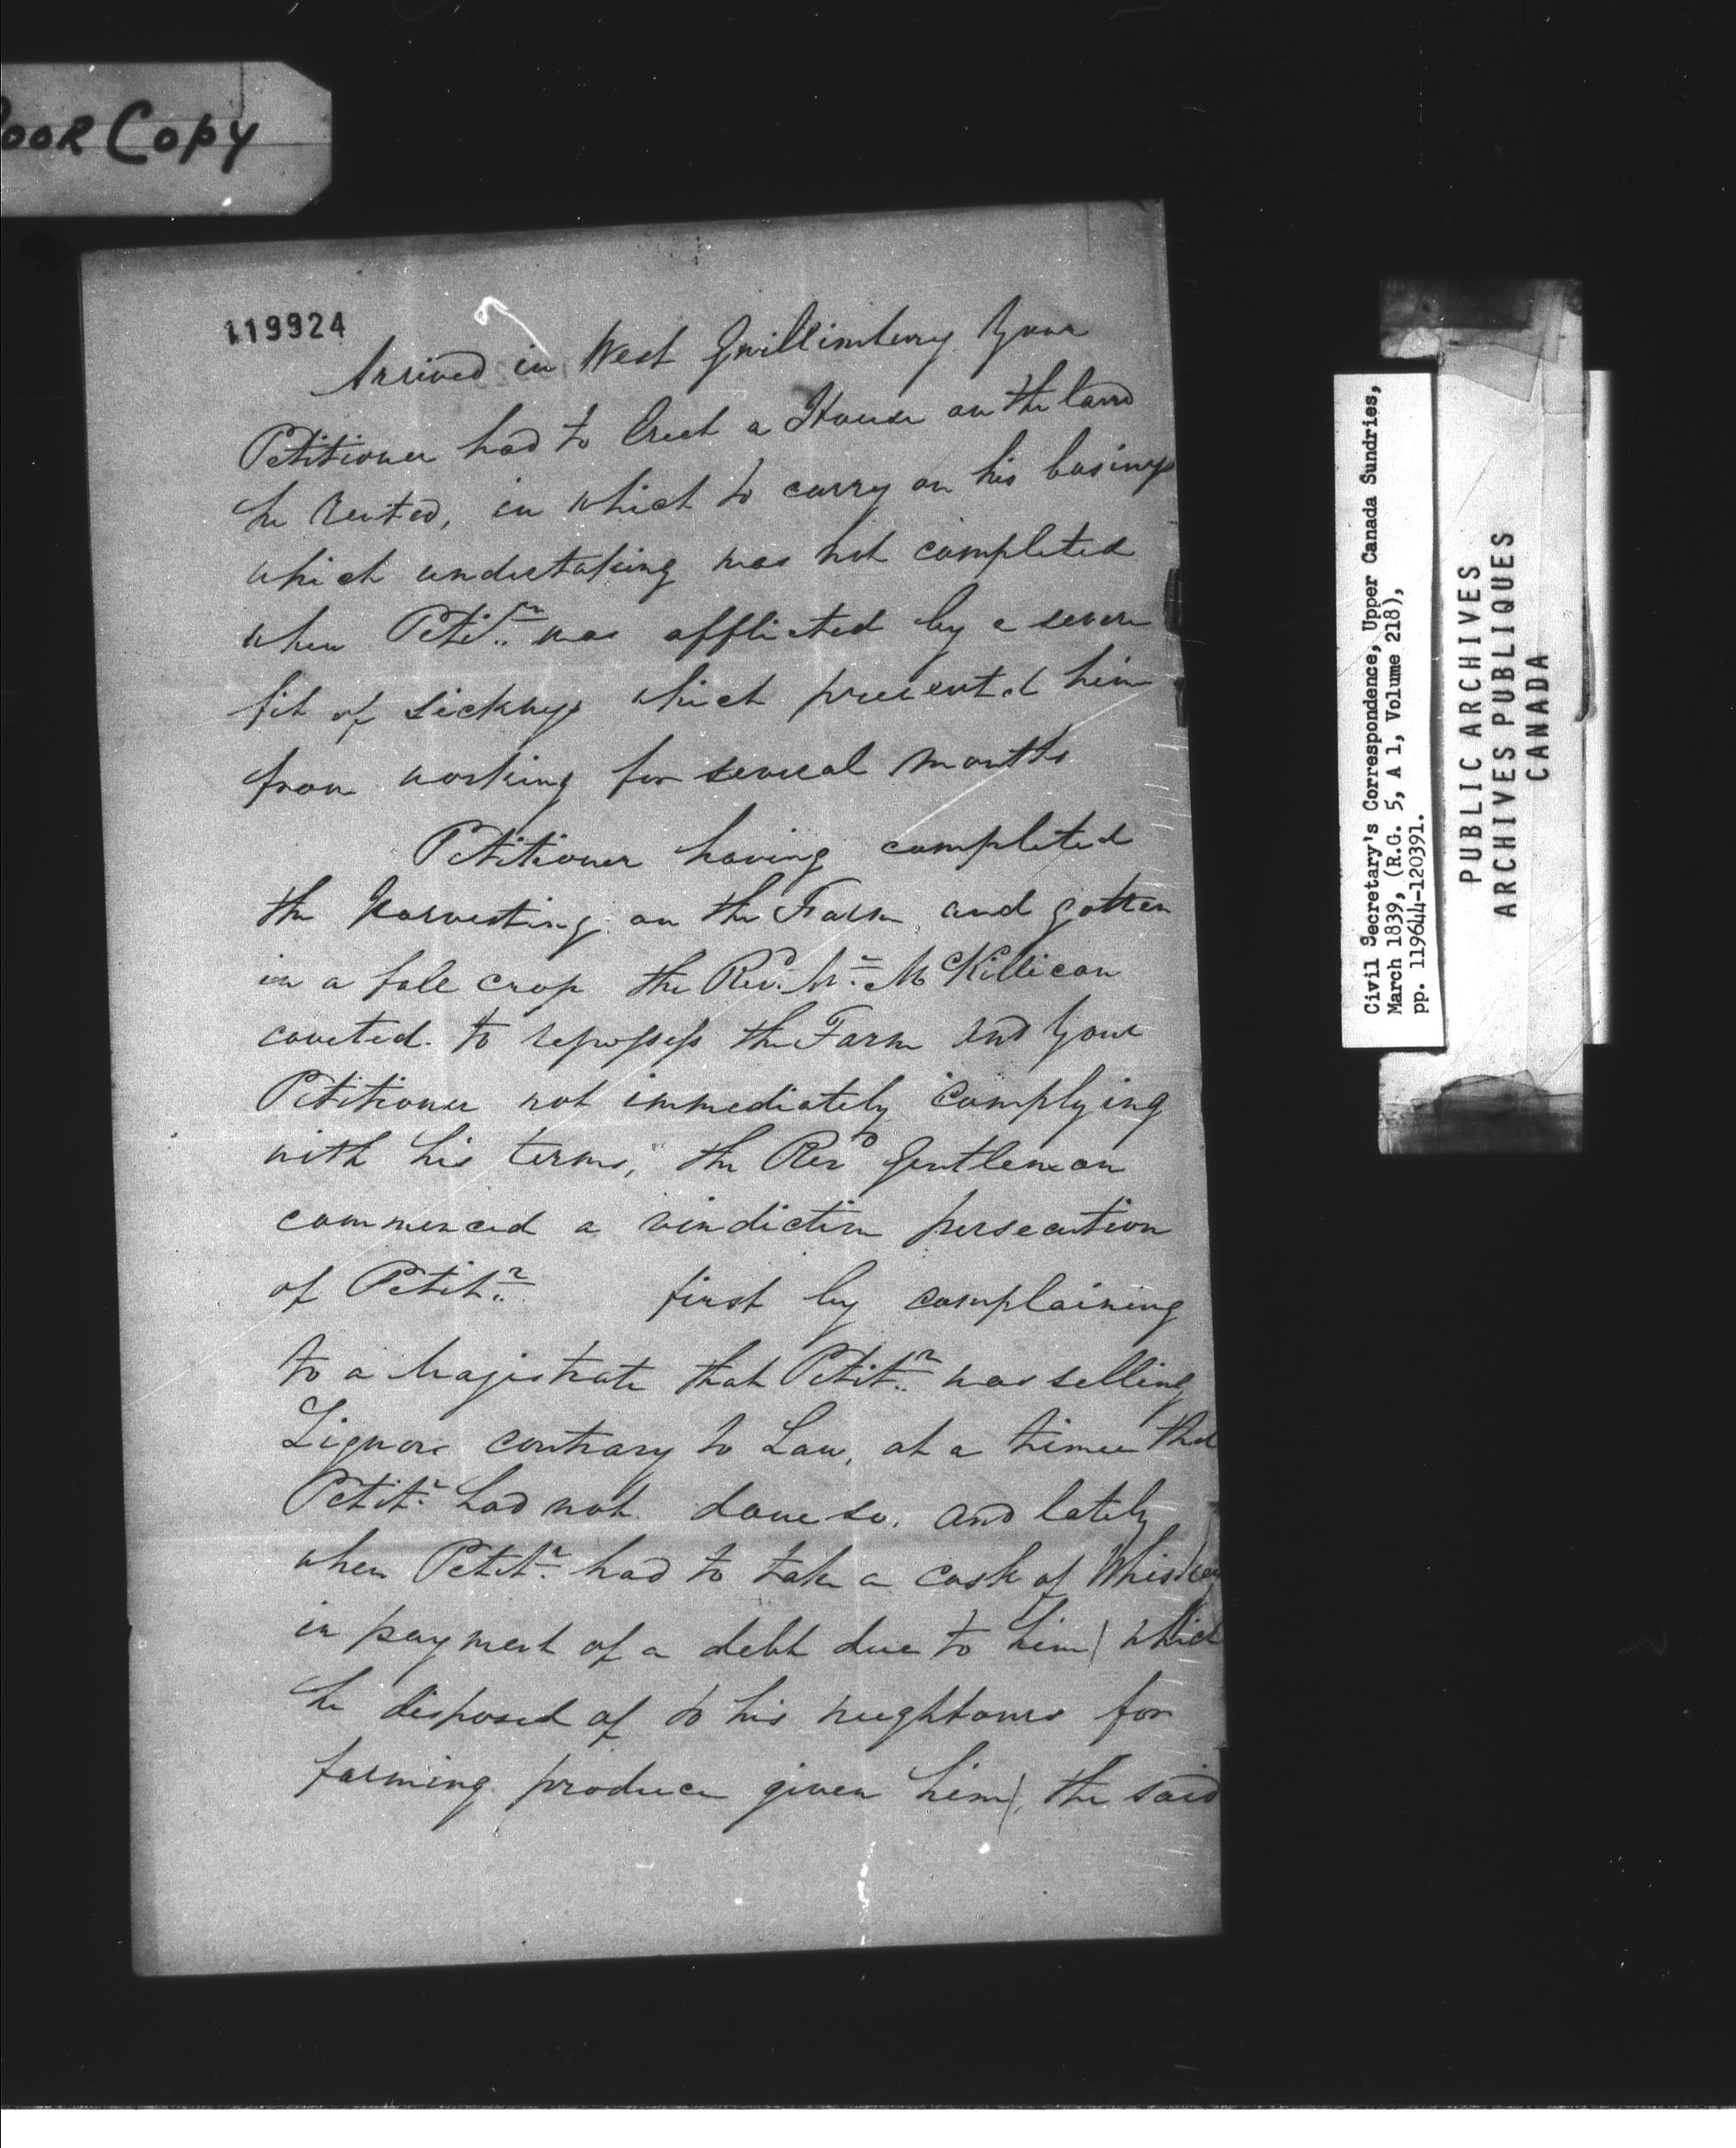 POOR COPY
119924
Arrived in West Gwillimbury Your
Petitioner had to Erect a House on the land
he rented, in which to carry on his business
which undertaking was not completed
when Petit.r was afflicted by a severe
fit of sickness which prevented him
from working for several months
Petitioner having completed
the Harvesting on the Farm and gotten
in a fall crop the Revd. Mr. McKillican
coveted to repossess the Farm and Your
Petitioner not immediately complying
with his terms, the Revd Gentleman
commenced a vindictive persecution
of Petit.r first by complaining
to a Magistrate that Petit.r was selling
Liquors contrary to Law, at a time that
Petit.r had not done so, and lately
when Petit.r had to take a cask of Whiskey
in payment of a debt due to him (which
he disposed of to his neighbours for
farming produce given him), the said
Civil Secretary's Correspondence, Upper Canada Sundries,
March 1839, (R.G. 5, A 1, Volume 218),
pp. 119644-120391.
PUBLIC ARCHIVES
ARCHIVES PUBLIQUES
CANADA